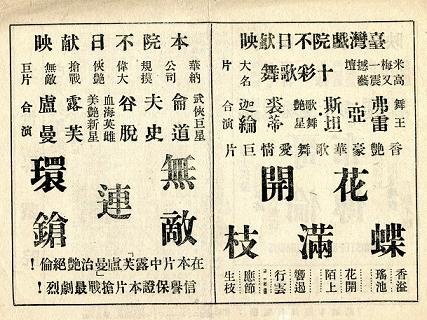 臺灣戲院不日献映
米高梅又一震撼藝壇
十彩歌舞大名片
舞王
弗雷亞斯坦
歌舞艷星
裘蒂迦綸
合演
香艷豪華歌舞愛情巨片
花開蝶滿枝
香溢瑤池
花開陌上
響遏行雲
應節生枝
本院不日献映
華納公司
規模偉大
搶戰俠艷
無敵巨片
武俠巨星
侖道夫史谷脫
血海英雄
美艷新星
露芙盧曼
合演
無敵連環鎗
在本片中露芙盧曼冶艷絕倫！
信譽保證本片搶戰最劇烈！